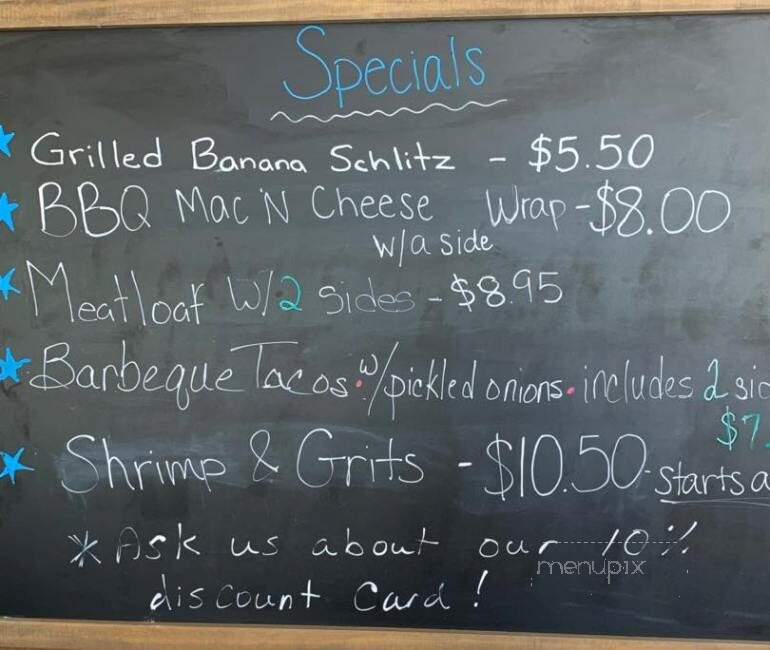 Specials
Grilled Banana Schlitz - $5.50
BBQ Mac 'N Cheese Wrap - $8.00
w/a side
Meatloaf W/2 sides - $8.95
Barbeque Tacos w/pickled onions. includes 2
$7.
Shrimp & Grits - $10.50 - Starts
* Ask us about our 10%
menupix
discount Card!